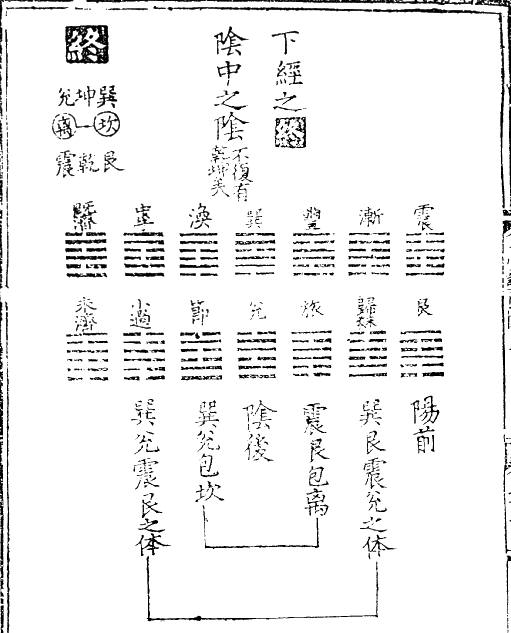 下經之終
陰中之陰
不復有
乾坤矣
終
巽坤兌
坎離
艮乾震
震 漸 豐 巽 渙 中孚 既濟
艮 歸妹 旅 兌 節 小過 未濟
陽前
巽艮震兌之体
震艮包离
陰後
巽兌包坎
巽兌震艮之体